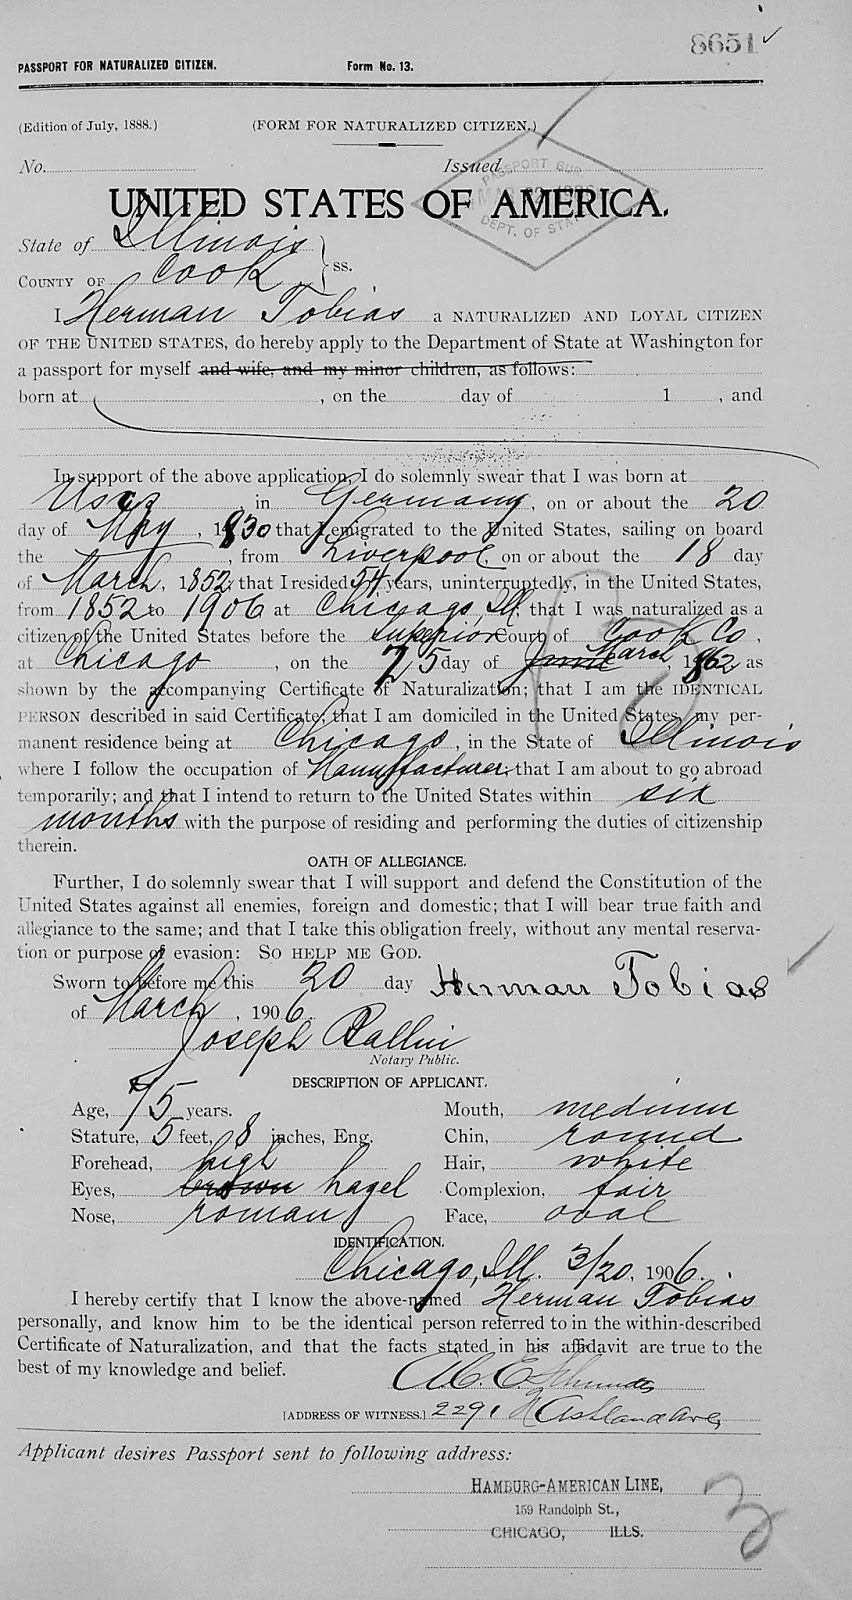 8651
PASSPORT FOR NATURALIZED CITIZEN. Form No. 13.
(Edition of July, 1888.) (FORM FOR NATURALIZED CITIZEN.)
No. Issued
PASSPORT BUR
DEPT. OF STATE
UNITED STATES OF AMERICA.
State of Illinois
County of Cook ss.
I Herman Tobias a NATURALIZED AND LOYAL CITIZEN
OF THE UNITED STATES, do hereby apply to the Department of State at Washington for
a passport for myself and wife, and my minor children, as follows:
born at , on the day of 1 , and
In support of the above application, I do solemnly swear that I was born at
in Germany, on or about the 20
day of May, 1830 that I emigrated to the United States, sailing on board
the , from Liverpool, on or about the 18 day
of March, 1852, that I resided 54 years, uninterruptedly, in the United States,
from 1852 to 1906 at Chicago, Ill, that I was naturalized as a
citizen of the United States before the Superior Court of Cook Co,
at Chicago, on the 25 day of June March, 1862 as
shown by the accompanying Certificate of Naturalization; that I am the IDENTICAL
PERSON described in said Certificate; that I am domiciled in the United States, my per-
manent residence being at Chicago, in the State of Illinois
where I follow the occupation of Manufacturer; that I am about to go abroad
temporarily; and that I intend to return to the United States within six
months with the purpose of residing and performing the duties of citizenship
therein.
OATH OF ALLEGIANCE.
Further, I do solemnly swear that I will support and defend the Constitution of the
United States against all enemies, foreign and domestic; that I will bear true faith and
allegiance to the same; and that I take this obligation freely, without any mental reserva-
tion or purpose of evasion: So HELP ME GOD.
Sworn to before me this 20 day Herman Tobias
of March, 1906.
Joseph Ballin
Notary Public.
DESCRIPTION OF APPLICANT.
Age, 75 years. Mouth, medium
Stature, 5 feet, 8 inches, Eng. Chin, round
Forehead, high Hair, white
Eyes, brown hagel Complexion, fair
Nose, roman Face, oval
IDENTIFICATION.
Chicago, Ill. 3/20, 1906.
I hereby certify that I know the above-named Herman Tobias
personally, and know him to be the identical person referred to in the within-described
Certificate of Naturalization, and that the facts stated in his affidavit are true to the
best of my knowledge and belief.
[ADDRESS OF WITNESS.] 2291 N Ashland Ave,
Applicant desires Passport sent to following address:
HAMBURG-AMERICAN LINE,
159 Randolph St.,
CHICAGO, ILLS.
3